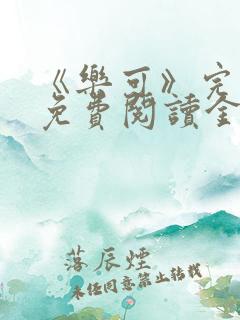 《樂可》完
免費閱讀全
落辰煙
未經同意禁止轉載